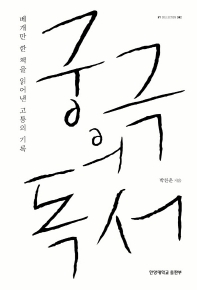 베개만 한 책을 읽어낸 고통의 기록
궁극
의
독서
박찬운 지음
한양대학교 출판부